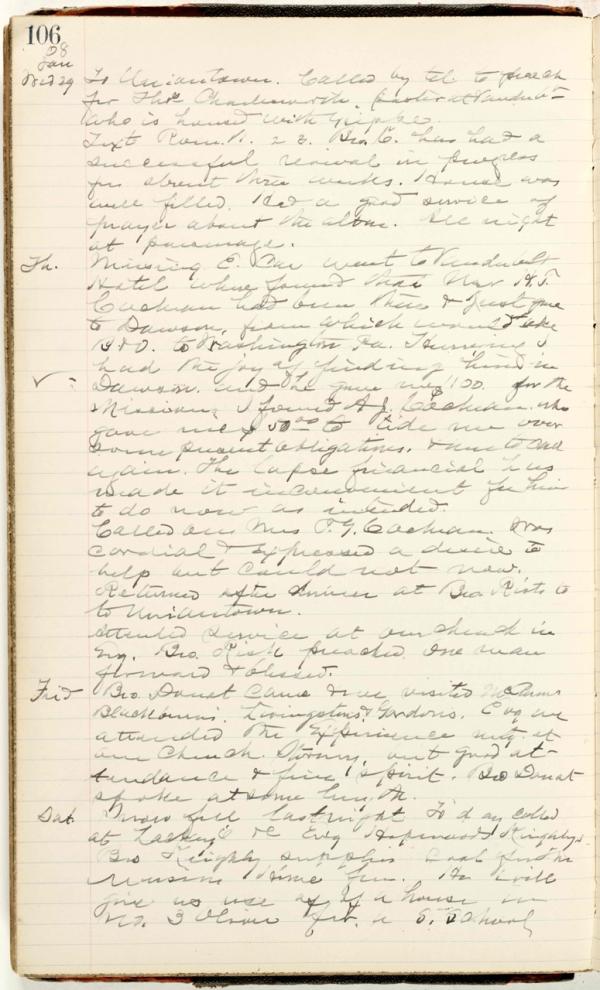 106
Jan 28
Wed 29 To Uniontown. Called by tel. to preach
for Thos Charlesworth, pastor at Vanderbt
who is housed with grippe.
Text Rom. 1. Bro. C. has had a
successful revival in progress
for about three weeks. House was
well filled. Had a good service of
prayer about the altar. All night
at parsonage.
Th. Missing E. Car went to Vanderbilt
Hotel where found that H. T.
Cochran had been there & just gone
to Dawson, from which would take
B & O. to Washington Pa. Hurrying I
had the joy of finding him in
Dawson. and he gave me 100 for the
Mission; I found A. J. Cochran who
gave me $50.00 to tide me over
some present obligations. & am to call
again. The lapse financial has
made it inconvenient for him
to do now as intended.
Called on Mrs P. G. Cochran. Was
cordial & expressed a desire to
help but could not now.
Returned after dinner at Bro. Rists to
to Uniontown.
Attended service at our church in
Evg. Bro. Rish preached. One man
forward & blessed.
Frid Bro. Donat came & we visited
Blackburns. Livingstons & Gordons. Evg we
attended the Experience mtg. at
our Church. Stormy, but good at-
tendance & fine spirit. Bro Donat
spoke at some length.
Sat. Snow fell last night. To day called
at & Evg Hopwood
Bro Keighly supplies coal for the
Mission Home. He will
give us use of a house in
No. 3 Oliver for a S. School